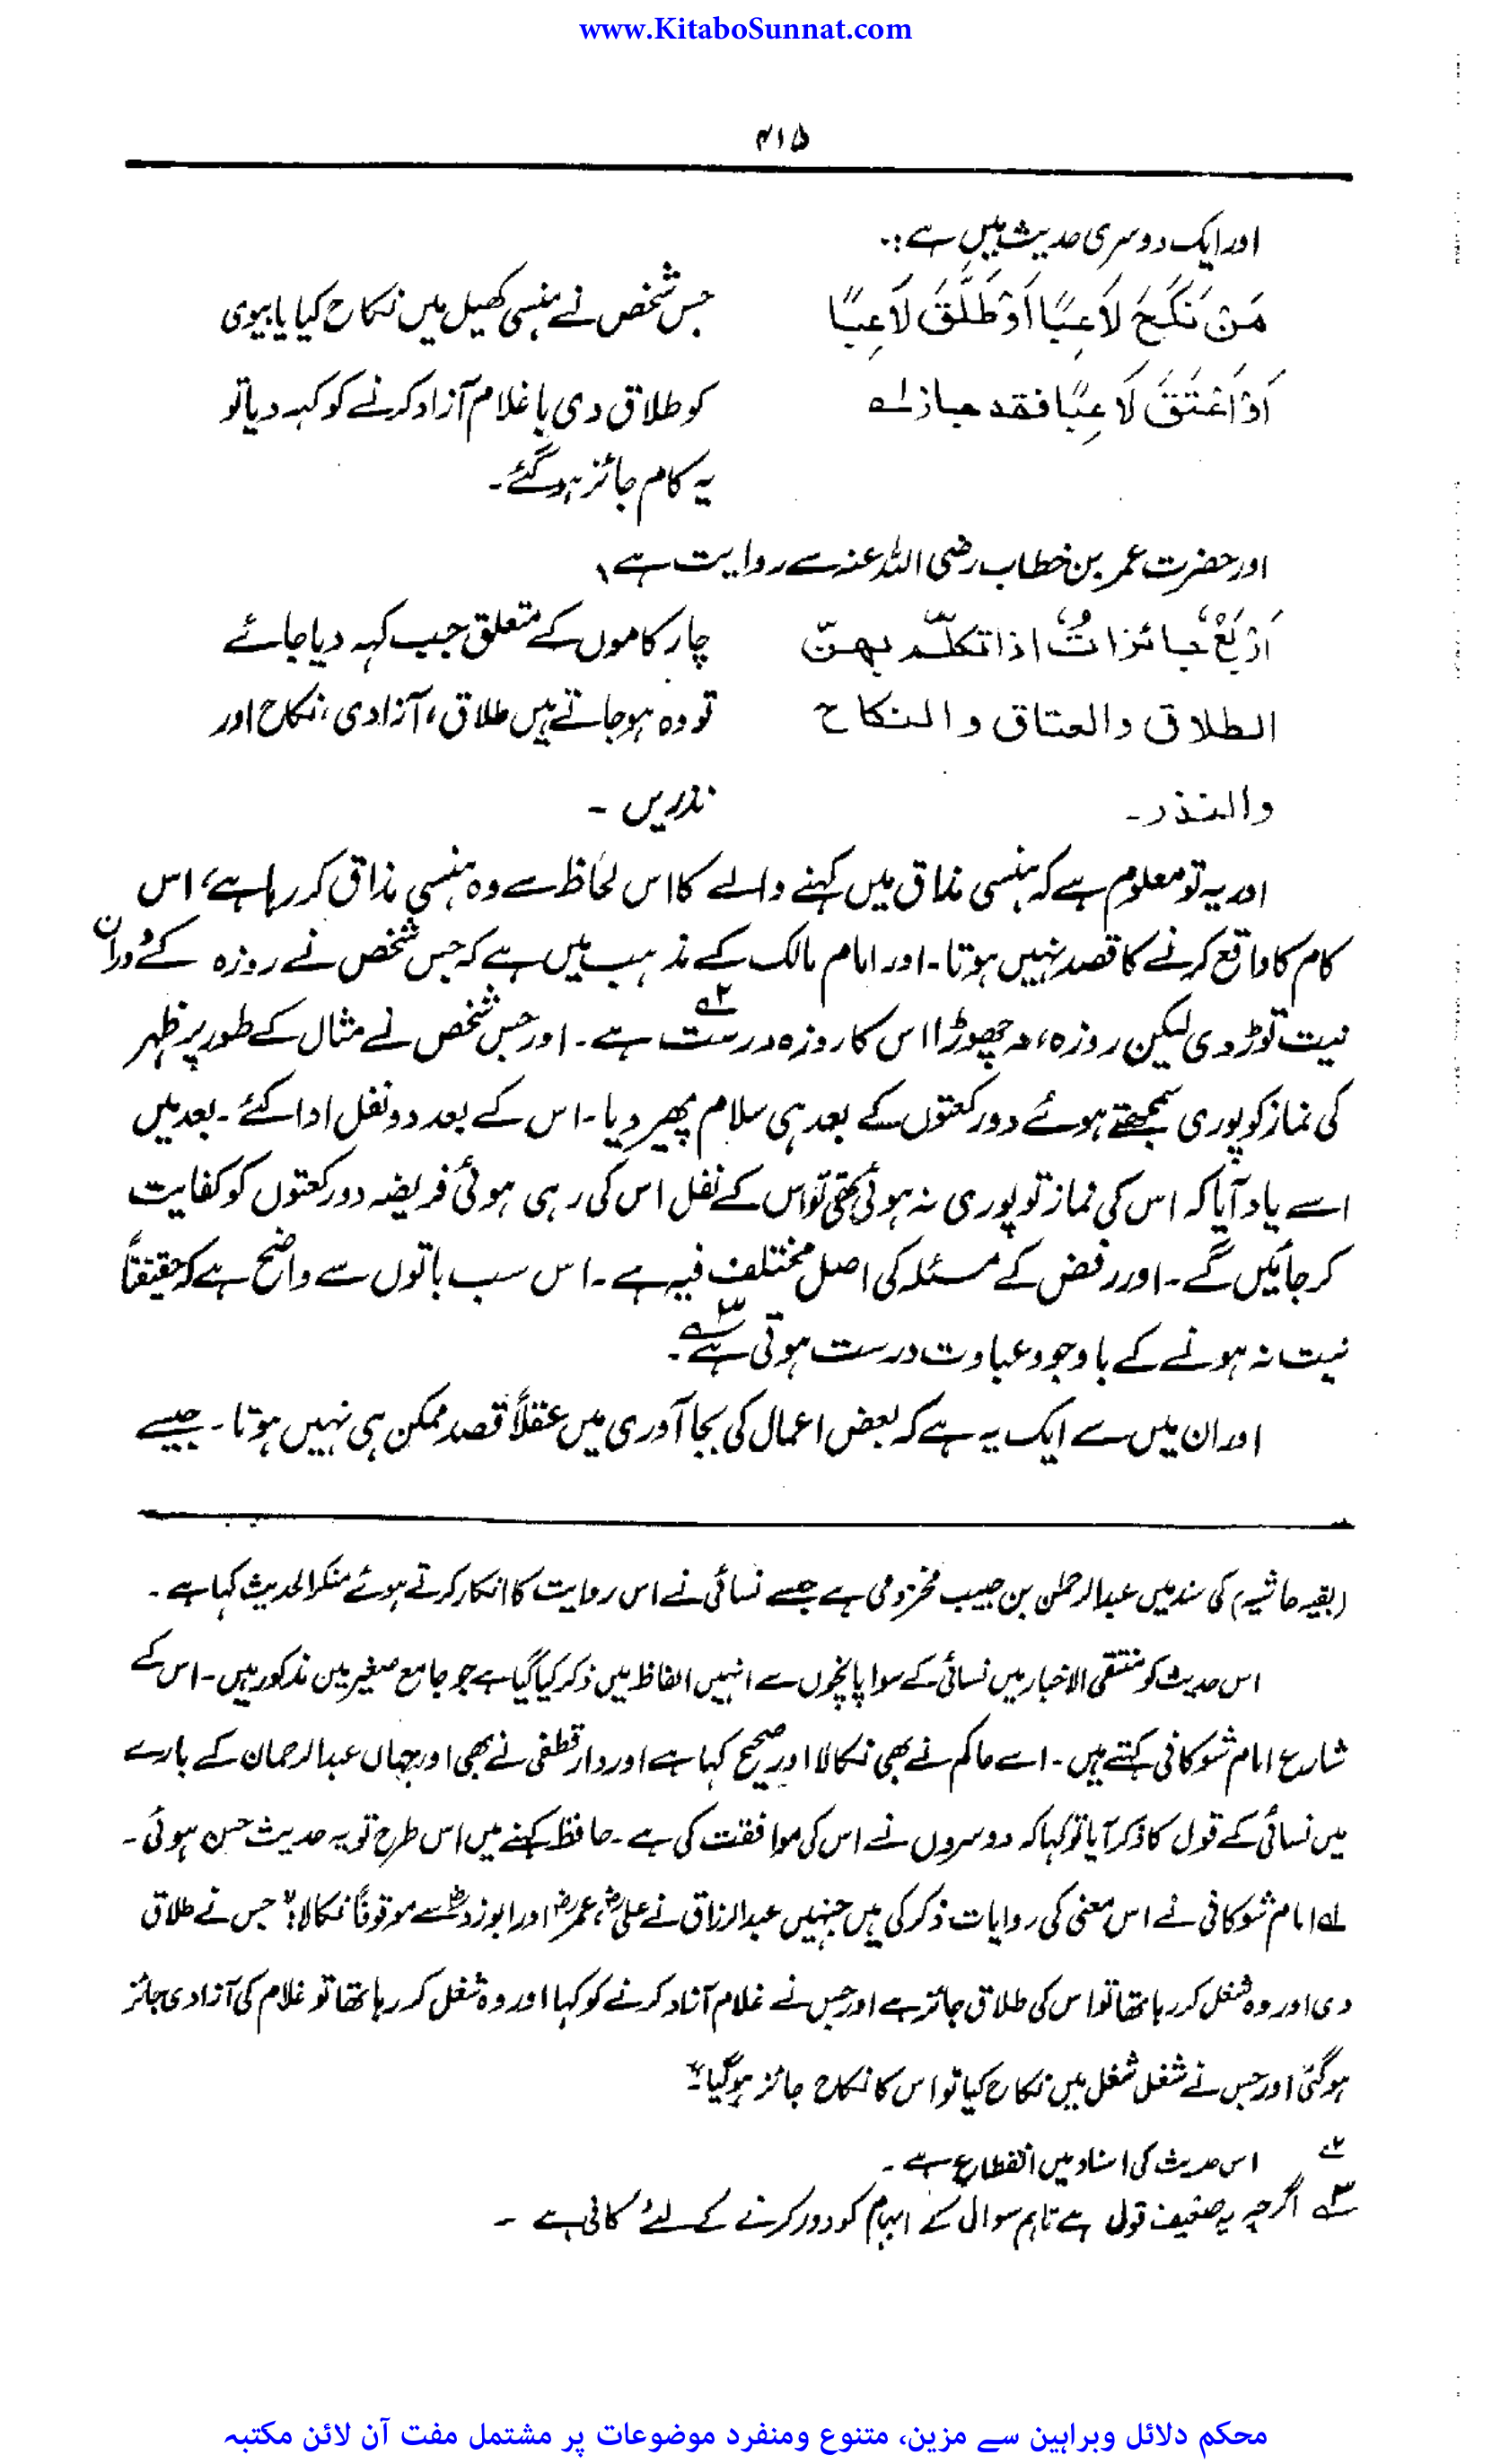 www.KitaboSunnat.com
۴۱۵
اور ایک دوسری حدیث میں ہے:-
مَنْ نَكَحَ لَاعِبًا اَوْ طَلَّقَ لَاعِبًا
جس شخص نے ہنسی کھیل میں نکاح کیا یا بیوی
اَوْ اَعْتَقَ لَاعِبًا فقد جاز لہ
کو طلاق دی یا غلام آزاد کرنے کو کہہ دیا تو
یہ کام جائز ہو گئے۔
اور حضرت عمر بن خطاب رضی اللہ عنہ سے روایت ہے،
اَرْبَعٌ جائزاتٌ اذا تکلّم بھنّ
چار کاموں کے متعلق جب کہہ دیا جائے
الطلاق والعتاق والنکاح
تو وہ ہو جاتے ہیں طلاق، آزادی، نکاح اور
والنذر۔
نذریں ۔
اور یہ تو معلوم ہے کہ ہنسی مذاق میں کہنے والے کا اس لحاظ سے وہ ہنسی مذاق کر رہا ہے، اس
کام کا واقع کرنے کا قصد نہیں ہوتا۔ اور امام مالک کے مذہب میں ہے کہ جس شخص نے روزہ کے دوران
نیت توڑ دی لیکن روزہ نہ چھوڑا اس کا روزہ درست ۲؎ ہے۔ اور جس شخص نے مثال کے طور پر ظہر
کی نماز کو پوری سمجھتے ہوئے دو رکعتوں کے بعد ہی سلام پھیر دیا۔ اس کے بعد دو نفل ادا کئے۔ بعد میں
اسے یاد آیا کہ اس کی نماز تو پوری نہ ہوئی تھی تو اس کے نفل اس کی رہی ہوئی فریضہ دو رکعتوں کو کفایت
کر جائیں گے۔ اور رفض کے مسئلہ کی اصل مختلف فیہ ہے۔ اس سب باتوں سے واضح ہے کہ حقیقتاً
نیت نہ ہونے کے باوجود عبادت درست ہوتی ہے ۳؎۔
اور ان میں سے ایک یہ ہے کہ بعض اعمال کی بجا آوری میں عقلاً قصد ممکن ہی نہیں ہوتا۔ جیسے
(بقیہ حاشیہ) کی سند میں عبدالرحمٰن بن حبیب مخزومی ہے جسے نسائی نے اس روایت کا انکار کرتے ہوئے منکر الحدیث کہا ہے۔
اس حدیث کو منتقی الاخبار میں نسائی کے سوا پانچوں سے انہیں الفاظ میں ذکر کیا گیا ہے جو جامع صغیر میں مذکور ہیں۔ اس کے
شارع امام شوکانی کہتے ہیں۔ اسے حاکم نے بھی نکالا اور صحیح کہا ہے اور دارقطنی نے بھی اور جہاں عبدالرحمان کے بارے
میں نسائی کے قول کا ذکر آیا تو کہا کہ دوسروں نے اس کی موافقت کی ہے۔ حافظ کہنے میں اس طرح تو یہ حدیث حسن ہوئی۔
۱؎ امام شوکانی نے اس معنی کی روایات ذکر کی ہیں جنہیں عبدالرزاق نے علیؓ، عمرؓ اور ابوذرؓ سے موقوفاً نکالا: "جس نے طلاق
دی اور وہ شغل کر رہا تھا تو اس کی طلاق جائز ہے اور جس نے غلام آزاد کرنے کو کہا اور وہ شغل کر رہا تھا تو غلام کی آزادی جائز
ہو گئی اور جس نے شغل شغل میں نکاح کیا تو اس کا نکاح جائز ہو گیا"۔
۲؎ اس حدیث کی اسناد میں انقطاع ہے۔
۳؎ اگرچہ یہ ضعیف قول ہے تاہم سوال کے ابہام کو دور کرنے کے لئے کافی ہے ۔
محکم دلائل وبراہین سے مزین، متنوع ومنفرد موضوعات پر مشتمل مفت آن لائن مکتبہ